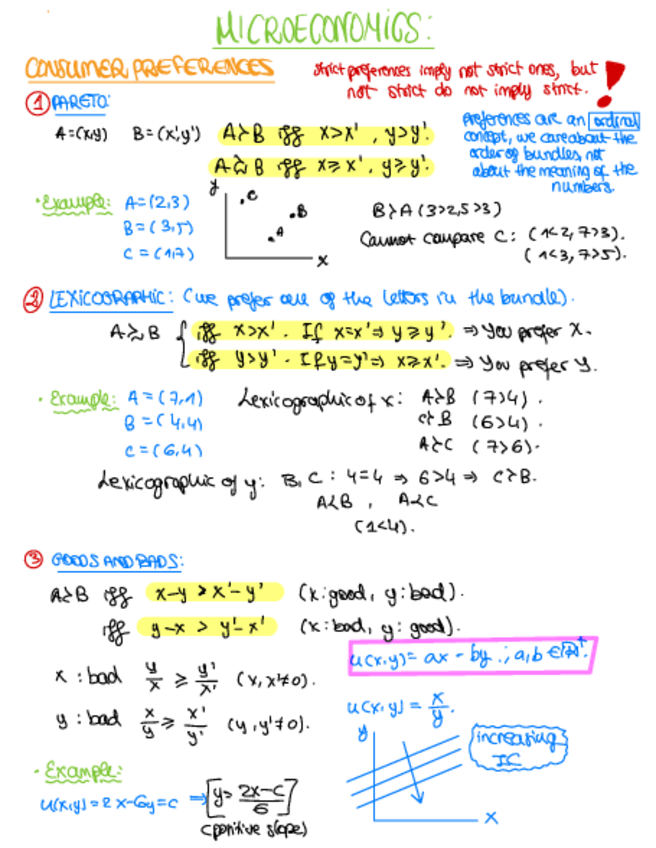 MICROECONOMICS:
CONSUMER PREFERENCES
strict preferences imply not strict ones, but
not strict do not imply strict. !
① PARETO:
A=(x,y) B=(x',y') A≻B iff x>x', y>y'.
A≿B iff x≥x', y≥y'.
preferences are an ordinal
concept, we care about the
order of bundles, not
about the meaning of the
numbers.
· Example: A=(2,3)
B=(3,5)
C=(1,7)
y
C
B
A
x
B≻A (3>2, 5>3)
Cannot compare C: (1<2, 7>3).
(1<3, 7>5).
② LEXICOGRAPHIC: (we prefer one of the letters in the bundle).
A≿B { iff x>x'. If x=x' ⇒ y≥y'. ⇒ You prefer x.
iff y>y'. If y=y' ⇒ x≥x'. ⇒ You prefer y.
· Example: A=(7,1)
B=(4,4)
C=(6,4)
Lexicographic of x: A≻B (7>4).
C≻B (6>4).
A≻C (7>6).
Lexicographic of y: B,C: 4=4 ⇒ 6>4 ⇒ C≻B.
A≺B, A≺C
(1<4).
③ GOODS AND BADS:
A≻B iff x-y > x'-y' (x:good, y:bad).
iff y-x > y'-x' (x:bad, y:good).
x:bad y/x ≥ y'/x' (x,x'≠0).
y:bad x/y ≥ x'/y' (y,y'≠0).
u(x,y)= ax - by .; a,b ∈ ℝ⁺.
u(x,y) = x/y.
y
x
increasing
IC
· Example:
u(x,y)=2x-6y=c ⇒ [y= 2x-c/6]
(positive slope)